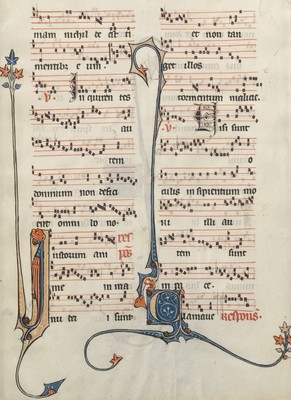 mam nichil de est ti
mentibz e um.
V. Inquiren tes
au
tem
dominum non defici
ent omni bo no.
Iustorum ani
me in ma
nu de i sunt
et non tan
get illos
tormentum malicie.
V. Visi sunt
o
culis insipientium mo
ri illi au
tem sunt
in pa ce.
Clamaue Respons.